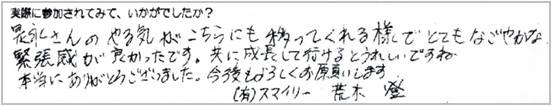 実際に参加されてみて、いかがでしたか？
泉水さんのやる気がこちらにも移ってくれる様でとてもなごやかな
緊張感が良かったです。共に成長して行けるとうれしいですね
本当にありがとうございました。今後もよろしくお願いします
(有)スマイリー 荒木